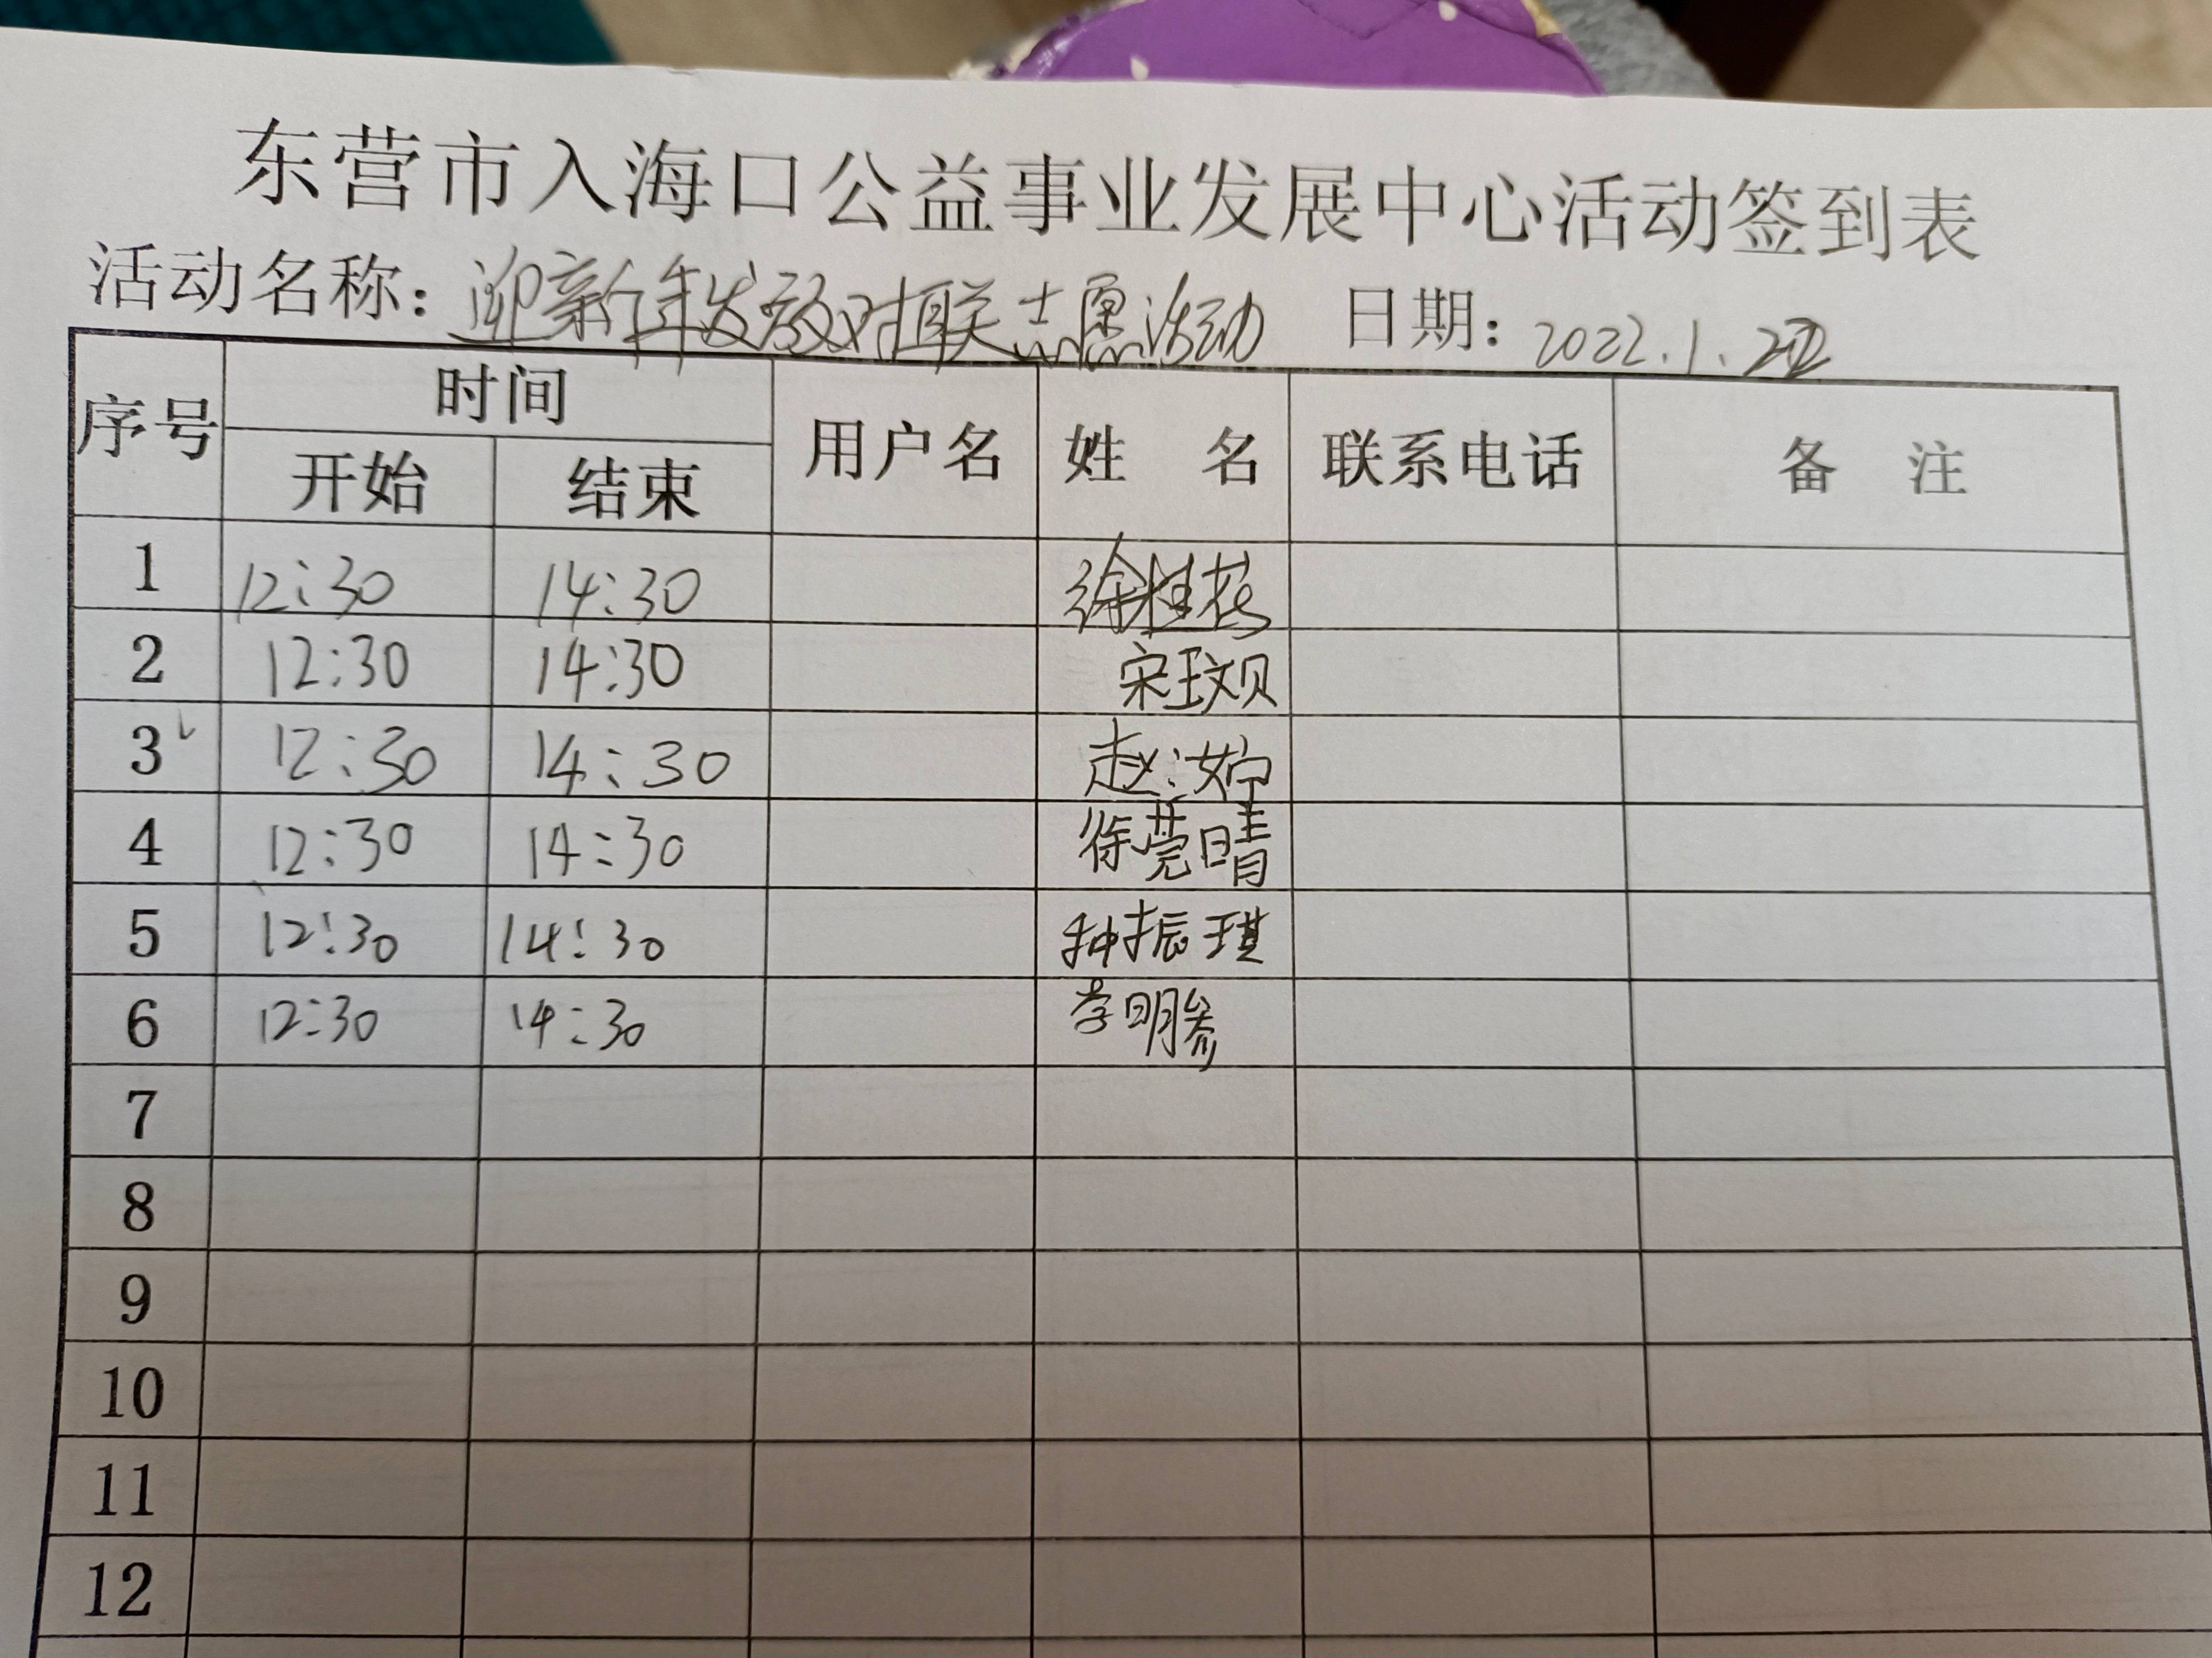 东营市入海口公益事业发展中心活动签到表
活动名称：迎新年发放对联志愿活动 日期：2022.1.22
序号 时间 用户名 姓 名 联系电话 备 注
开始 结束
1 12:30 14:30 徐桂花
2 12:30 14:30 宋玟贝
3 12:30 14:30 赵泞
4 12:30 14:30 徐莞晴
5 12:30 14:30 种振琪
6 12:30 14:30 李明参
7
8
9
10
11
12